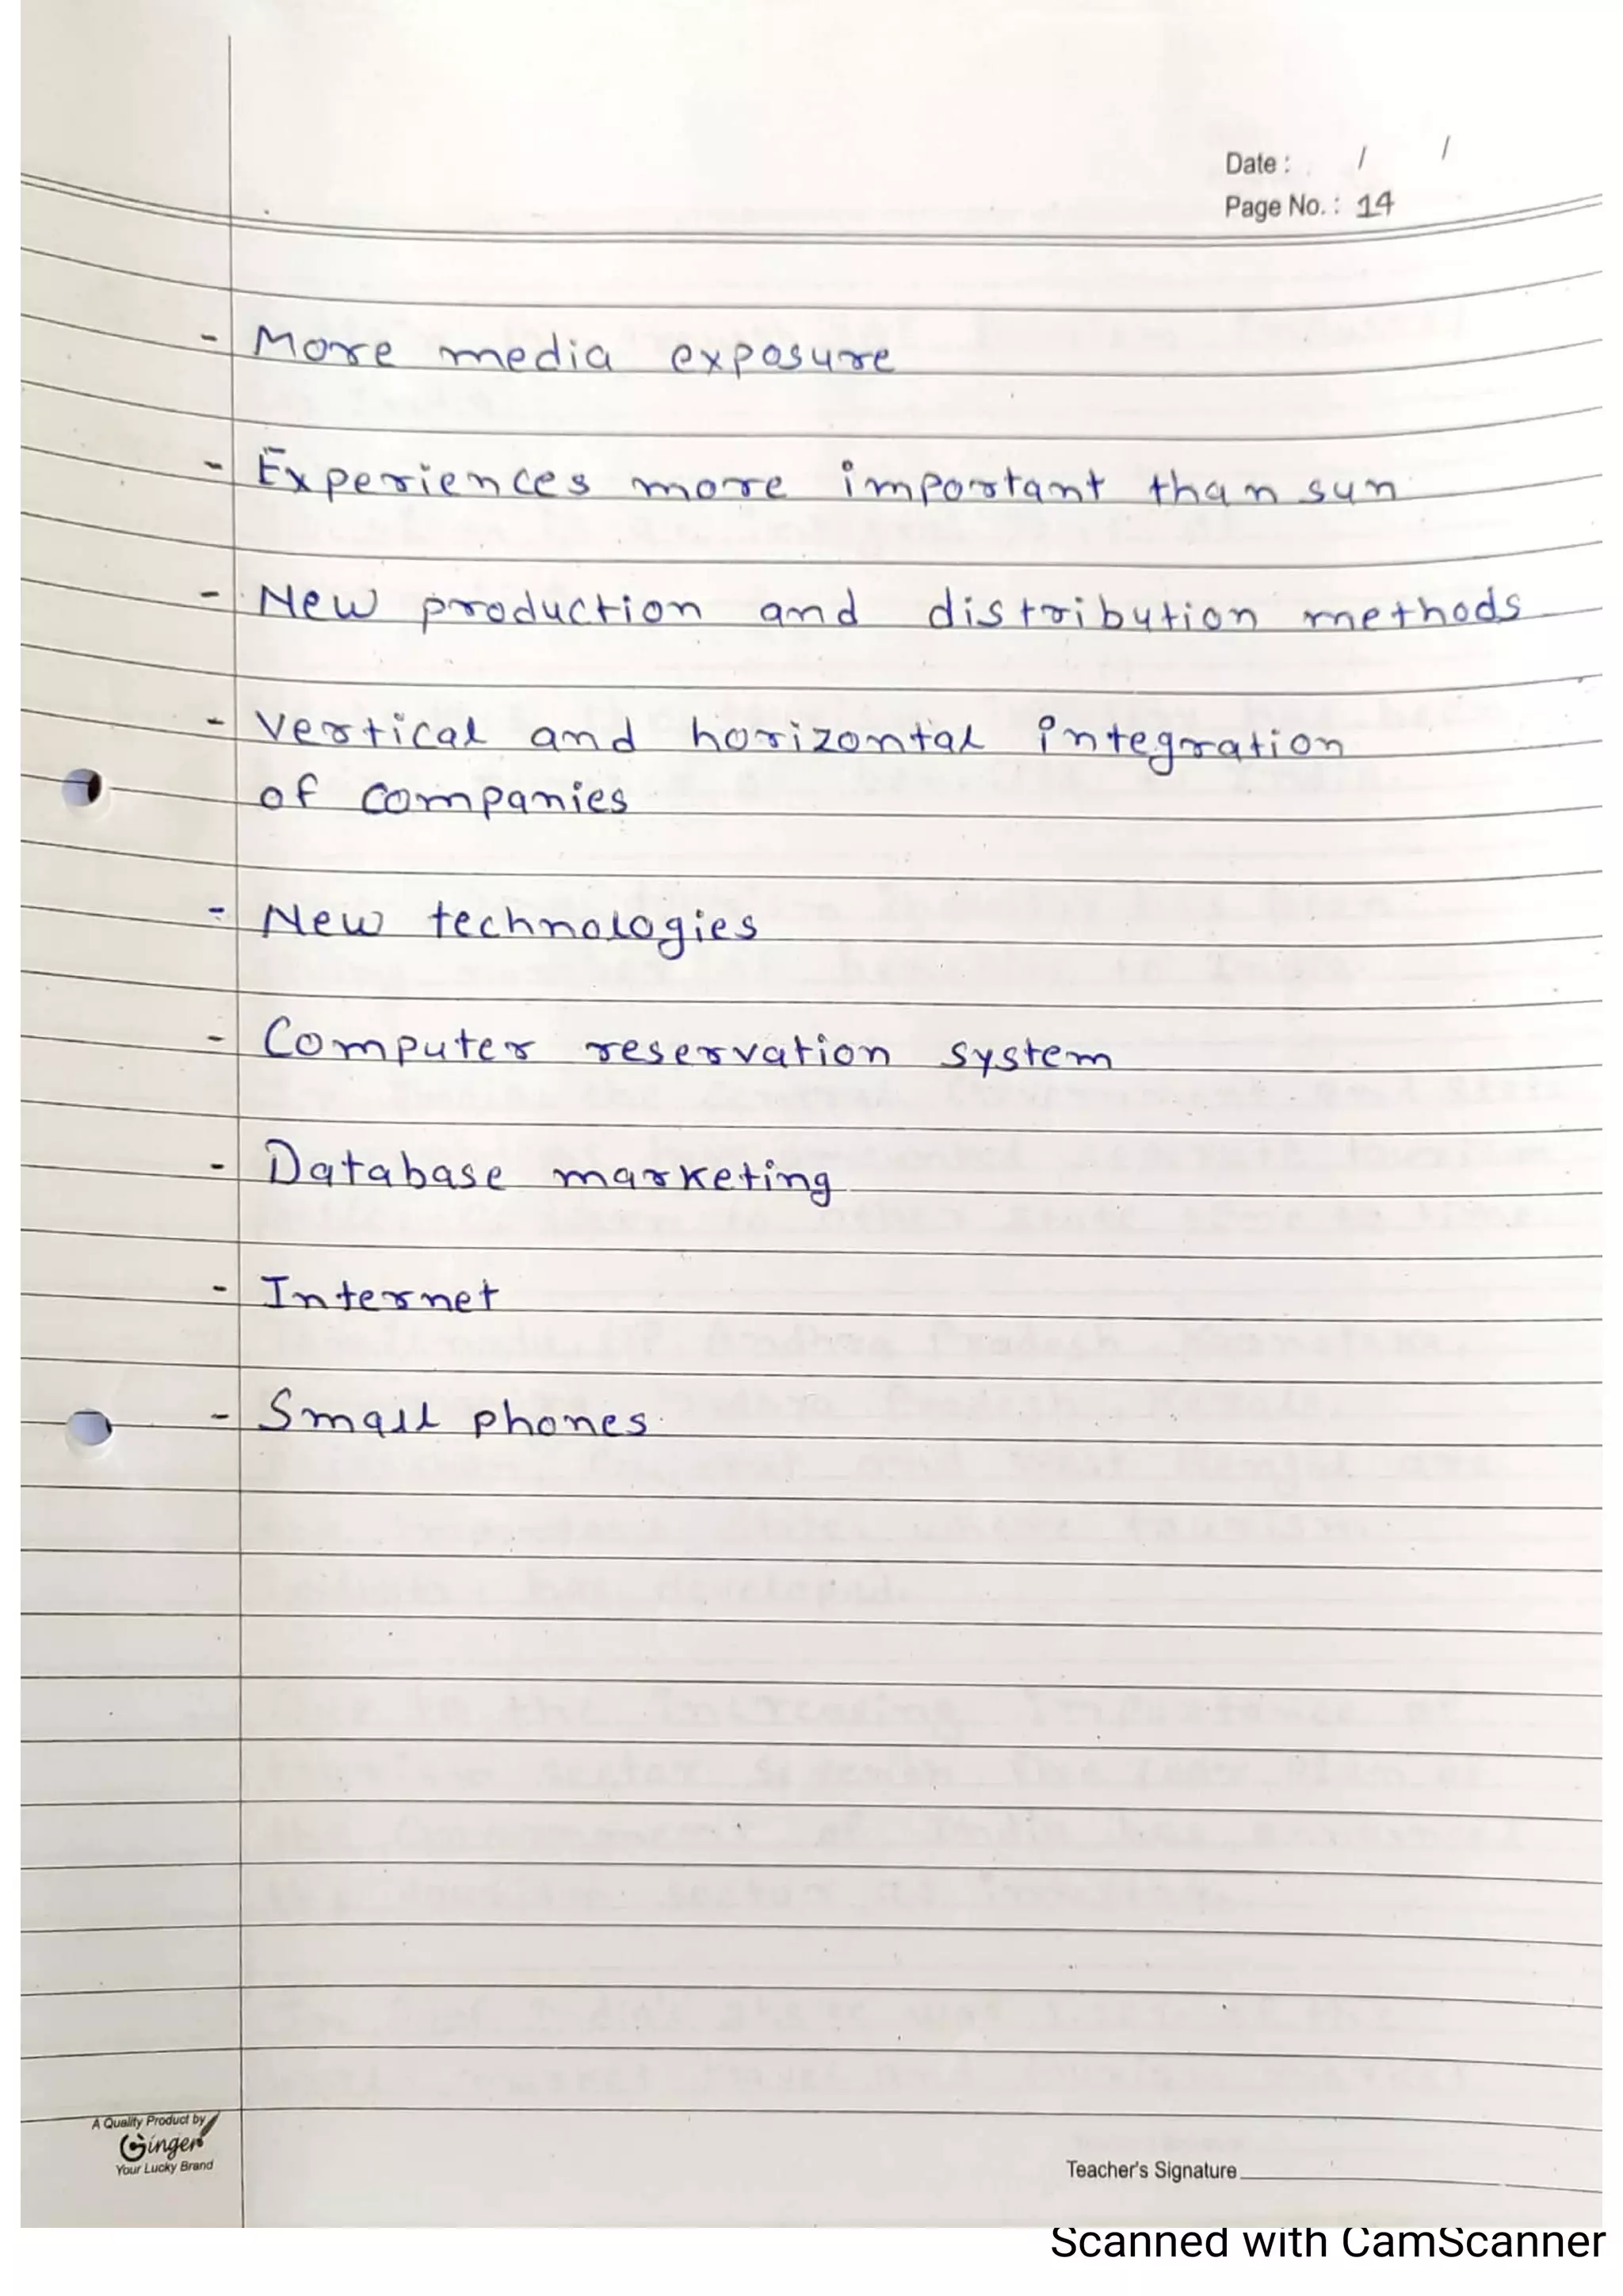 Date : / /
Page No. : 14
- More media exposure
- Experiences more important than sun
- New production and distribution methods
- Vertical and horizontal integration
of companies
- New technologies
- Computer reservation system
- Database marketing
- Internet
- Small phones.
A Quality Product by
Ginger
Your Lucky Brand
Teacher's Signature
Scanned with CamScanner